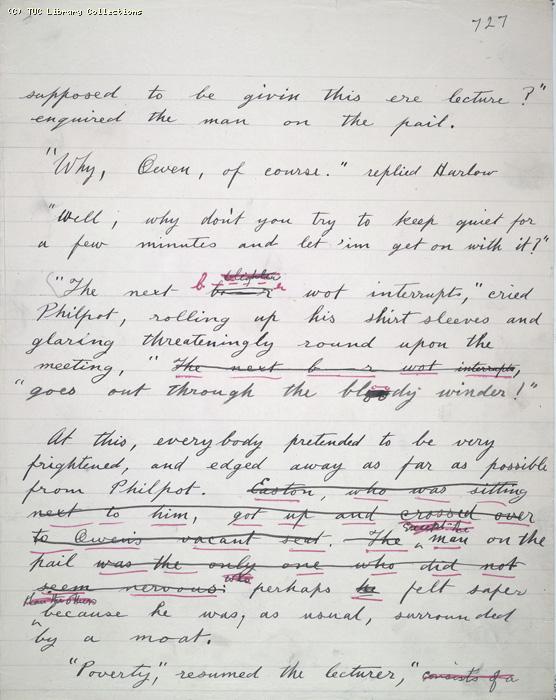 (c) TUC Library Collections
727
supposed to be givin this ere lecture?"
enquired the man on the pail.
"Why, Owen, of course." replied Harlow
"Well; why don't you try to keep quiet for
a few minutes and let 'im get on with it?"
"The next b r wot interrupts," cried
Philpot, rolling up his shirt sleeves and
glaring threateningly round upon the
meeting, " The next b r wot interrupts,
"goes out through the bloody winder!"
At this, everybody pretended to be very
frightened, and edged away as far as possible
from Philpot. Easton, who was sitting
next to him, got up and crossed over
to Owen's vacant seat. The except the man on the
pail was the only one who did not
seem nervous: who perhaps he felt safer
than the others because he was, as usual, surrounded
by a moat.
"Poverty," resumed the lecturer, "consists of a